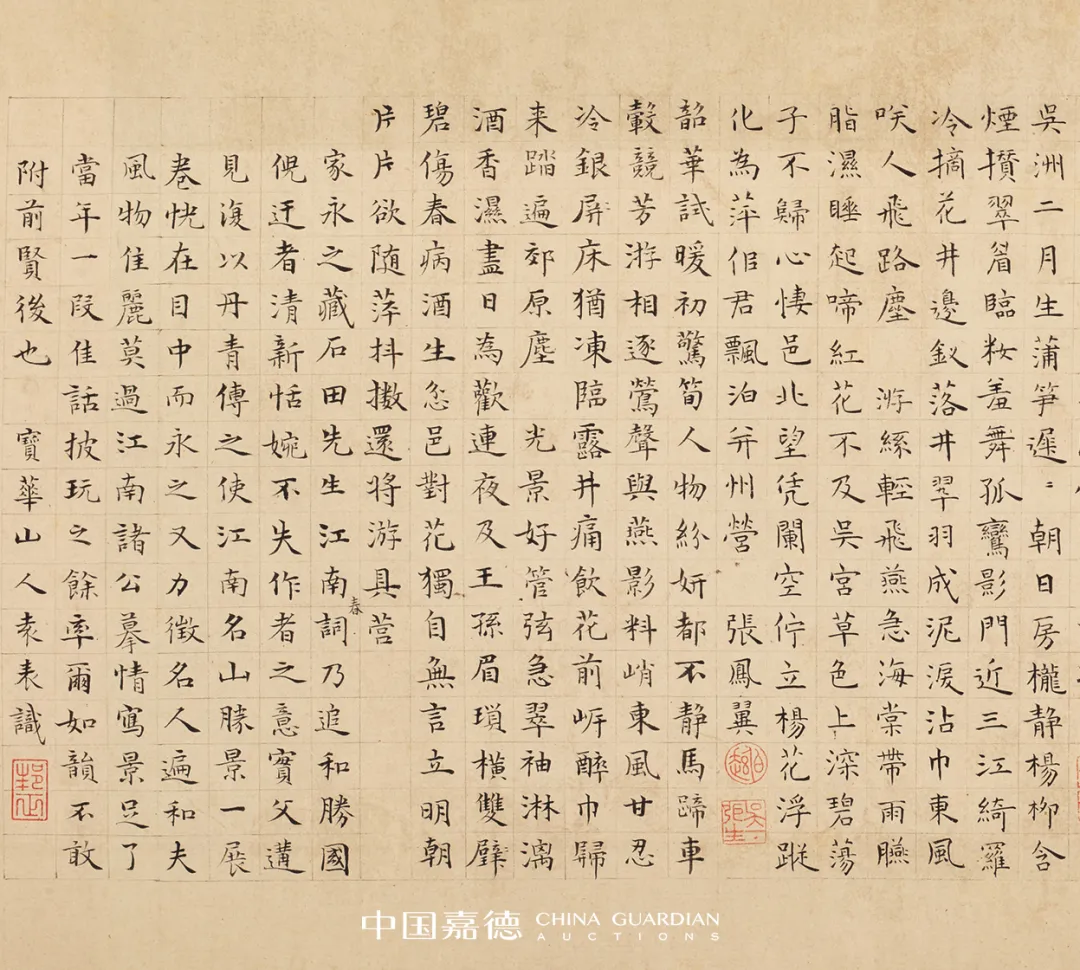 吳洲二月生蒲笋遲〻朝日房櫳静楊柳含
煙攢翠眉臨粧羞舞孤鸞影門近三江綺羅
冷摘花井邊釵落井翠羽成泥淚沾巾東風
咲人飛路塵 游絲輕飛燕急海棠帶雨臙
脂濕睡起啼紅花不及吳宮草色上深碧蕩
子不歸心悽邑北望凭闌空佇立楊花浮蹤
化為萍但君飄泊并州營 張鳳翼
韶華試暖初驚筍人物紛妍都不静馬蹄車
轂競芳游相逐鶯聲與燕影料峭東風甘忍
冷銀屏床猶凍臨露井痛飲花前岸醉巾歸
来踏遍郊原塵 光景好管弦急翠袖淋漓
酒香濕盡日為歡連夜及王孫眉瑣橫雙璧
碧傷春病酒生忿邑對花獨自無言立明朝
片片欲随萍抖擻還將游具营
家永之藏石田先生江南春詞乃追和勝國
倪迂者清新恬婉不失作者之意實父遘
見復以丹青傳之使江南名山勝景一展
卷恍在目中而永之又力徵名人遍和夫
風物佳麗莫過江南諸公摹情寫景足了
當年一段佳話披玩之餘率爾如韻不敢
附前賢後也 寶華山人袁表識
中国嘉德 CHINA GUARDIAN
AUCTIONS